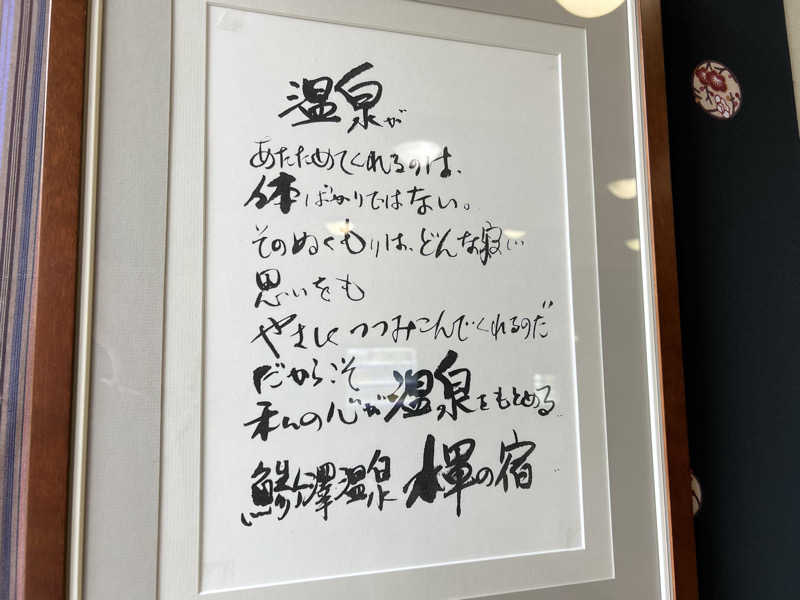 温泉が
あたためてくれるのは、
体ばかりではない。
そのぬくもりは、どんな寂しい
思いをも
やさしくつつみこんでくれるのだ
だからこそ
私の心が温泉をもとめる
鯵ヶ澤温泉 水軍の宿